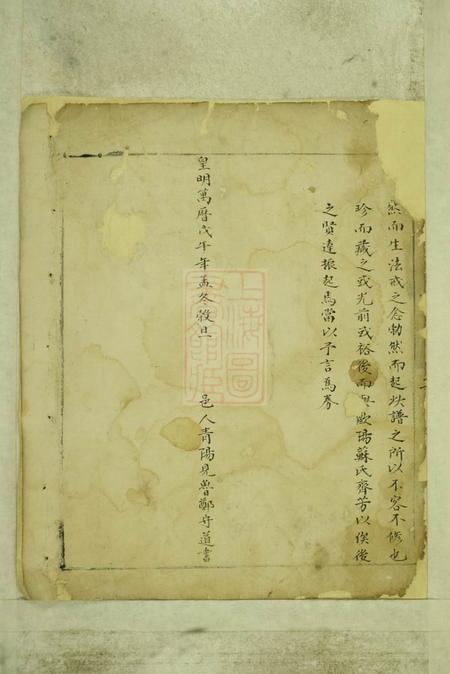 然而生法戒之念勃然而起此譜之所以不容不修也
珍而藏之或光前或裕後而與歐陽蘇氏齊芳以俟後
之賢達振起焉當以予言為券
皇明萬曆戊午年孟冬穀旦
邑人青陽見魯鄭守道書
上海圖